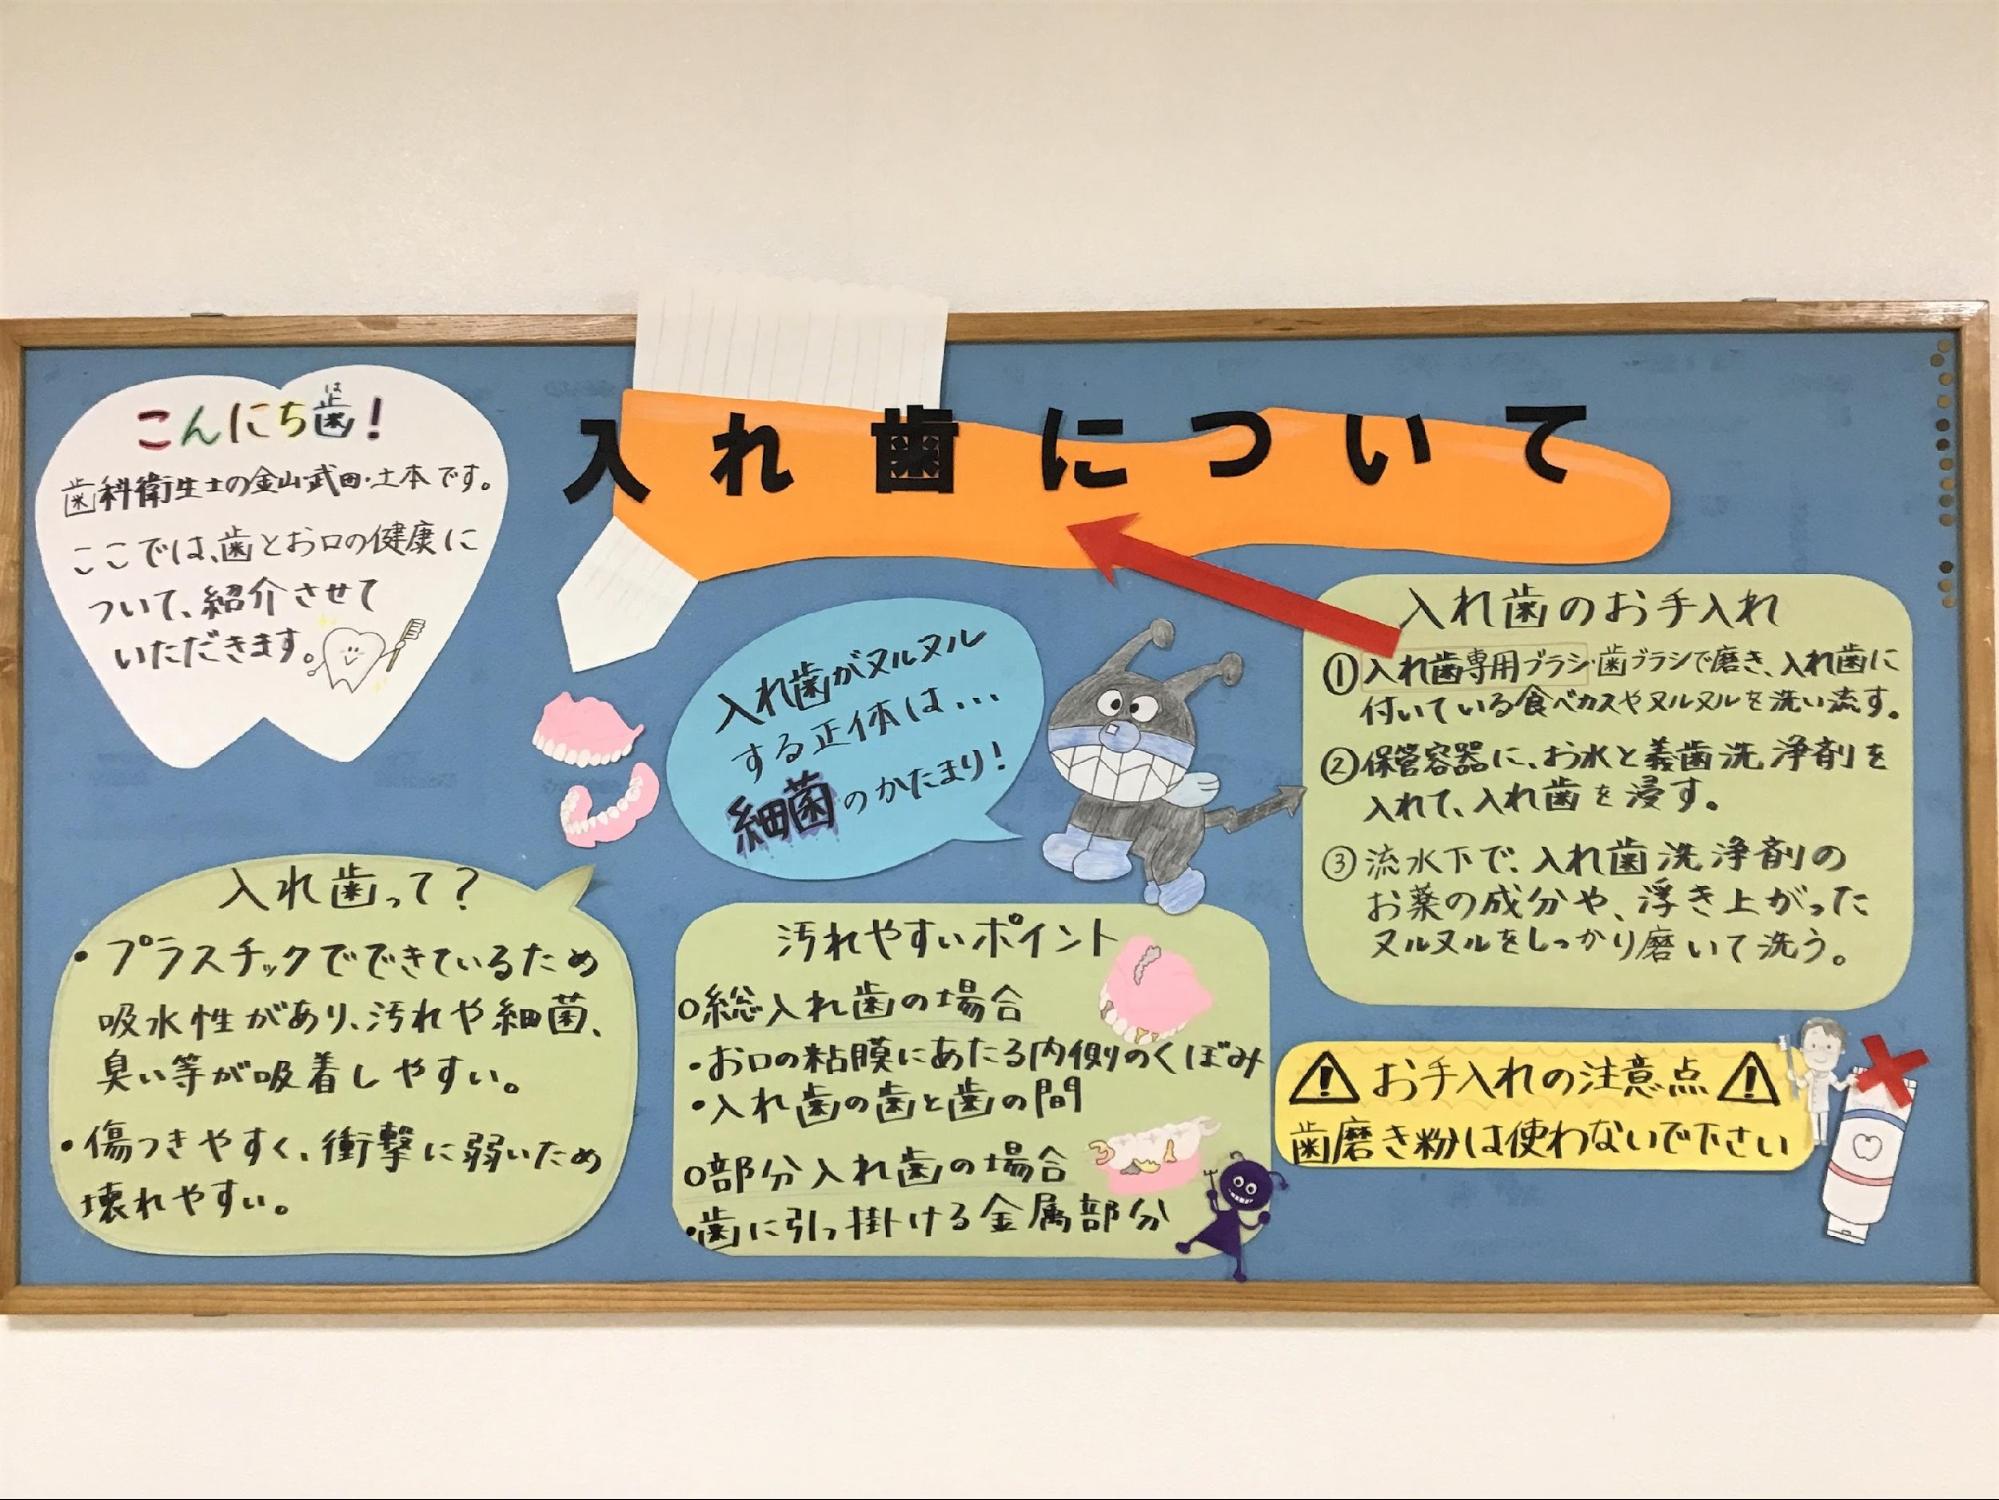 入れ歯について
こんにち歯！
は
歯科衛生士の金山・武田・土本です。
ここでは、歯とお口の健康に
ついて、紹介させて
いただきます。
入れ歯がヌルヌル
する正体は...
細菌のかたまり！
入れ歯って？
・プラスチックでできているため
吸水性があり、汚れや細菌、
臭い等が吸着しやすい。
・傷つきやすく、衝撃に弱いため
壊れやすい。
汚れやすいポイント
○総入れ歯の場合
・お口の粘膜にあたる内側のくぼみ
・入れ歯の歯と歯の間
○部分入れ歯の場合
・歯に引っ掛ける金属部分
入れ歯のお手入れ
①入れ歯専用ブラシ・歯ブラシで磨き、入れ歯に
付いている食べカスやヌルヌルを洗い流す。
②保管容器に、お水と義歯洗浄剤を
入れて、入れ歯を浸す。
③流水下で、入れ歯洗浄剤の
お薬の成分や、浮き上がった
ヌルヌルをしっかり磨いて洗う。
お手入れの注意点
歯磨き粉は使わないで下さい